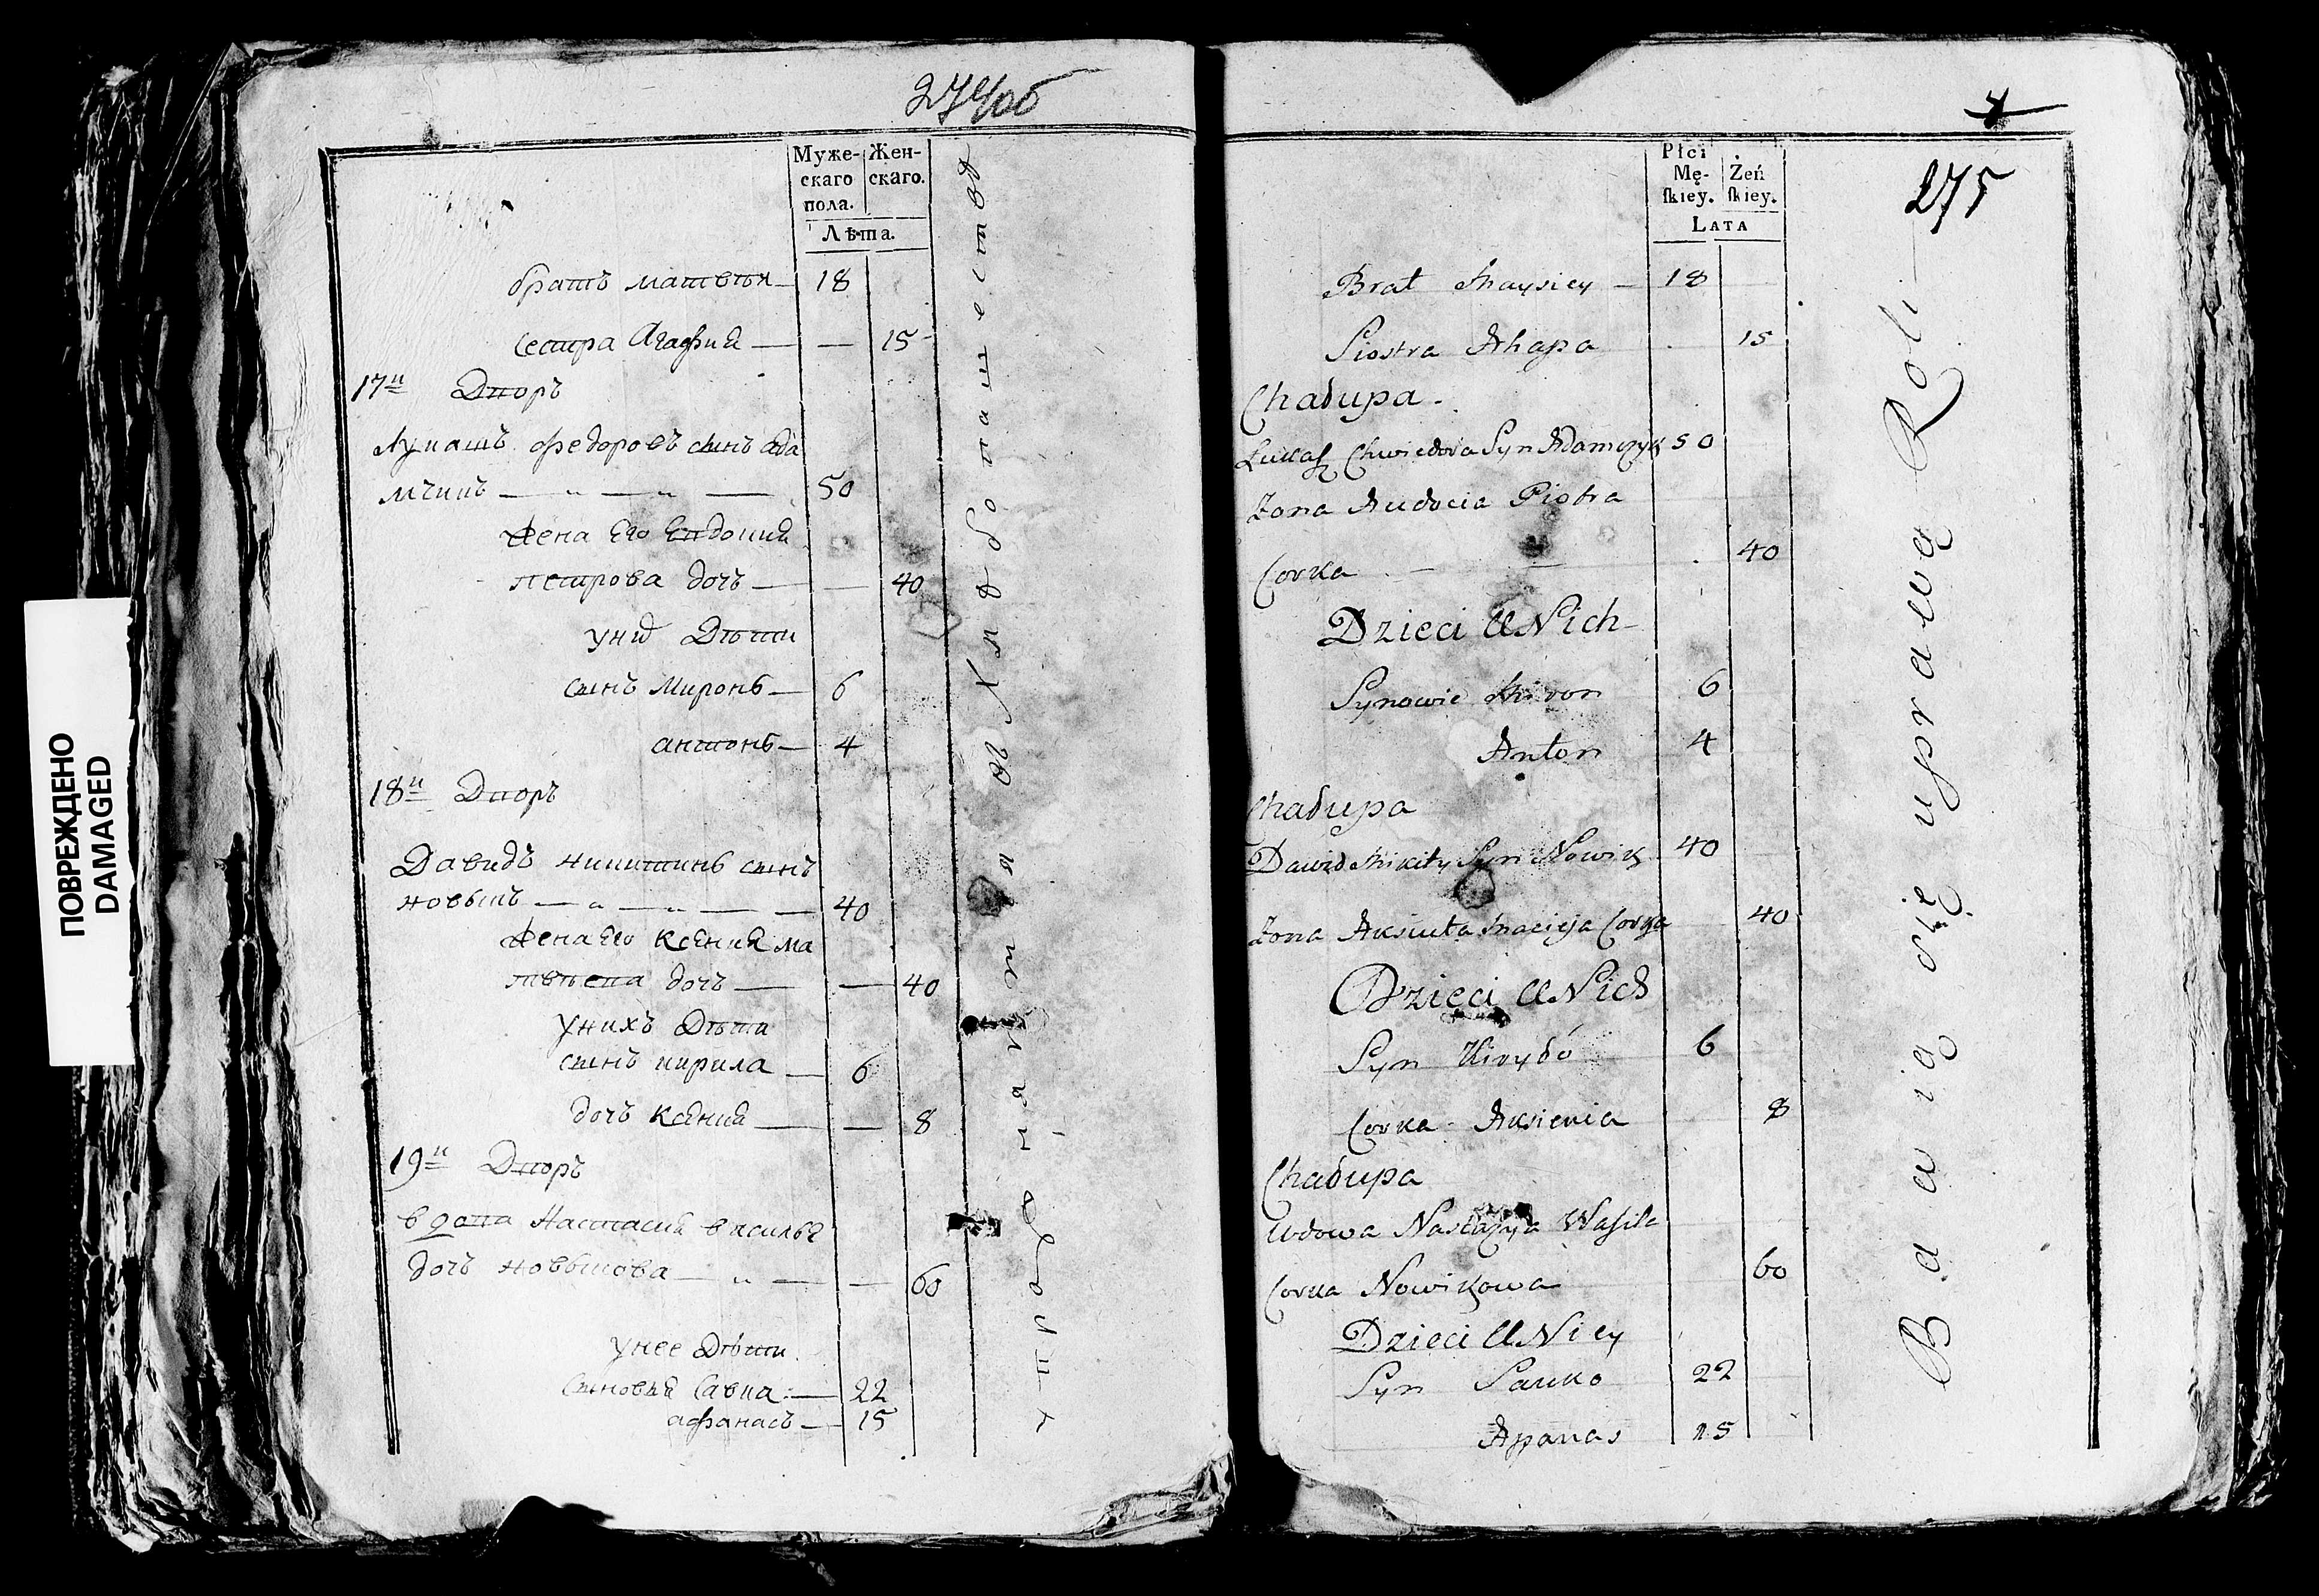 ПОВРЕЖДЕНО
DAMAGED
274об
Муже-
скаго
пола.
Жен-
скаго.
Лѣта.
братъ матвѣй 18
сестра Агафия — 15
17й Дворъ
Лукашъ федоровъ сынъ ада
мчикъ 50
жена Его Евдокия
петрова дочь — 40
уних Дѣти
сынъ Миронъ 6
антонъ 4
18й Дворъ
Давидъ никитинъ сынъ
новыкъ 40
жена Его Ксения ма
твѣева дочь — 40
унихъ Дѣти
сынъ кирила 6
дочь Ксения — 8
19й Дворъ
вдова Настасия василье
дочь новыкова — 60
унее Дѣти
сыновья Савка 22
афанасъ 15
упражняются въ Хлѣбопашествѣ
275
Płci
Mę-
ſkiey.
Żeń
ſkiey.
Lata
Brat Maysiey 18
Siostra Ahapa 15
Chałupa
Łukasz Chwiedora Syn Adamczyk 50
Żona Audocia Piotra
Corka 40
Dzieci U Nich
Synowie Miron 6
Anton 4
Chałupa
Dawid Mikity Syn Nowik 40
Żona Aksiuta Macieja Corka 40
Dzieci U Nich
Syn Kiryło 6
Corka Aksienia 8
Chałupa
Wdowa Nastazya Wasila
Corka Nowikowa 60
Dzieci U Niey
Syn Sauko 22
Apanas 15
Bawią się uprawą Roli